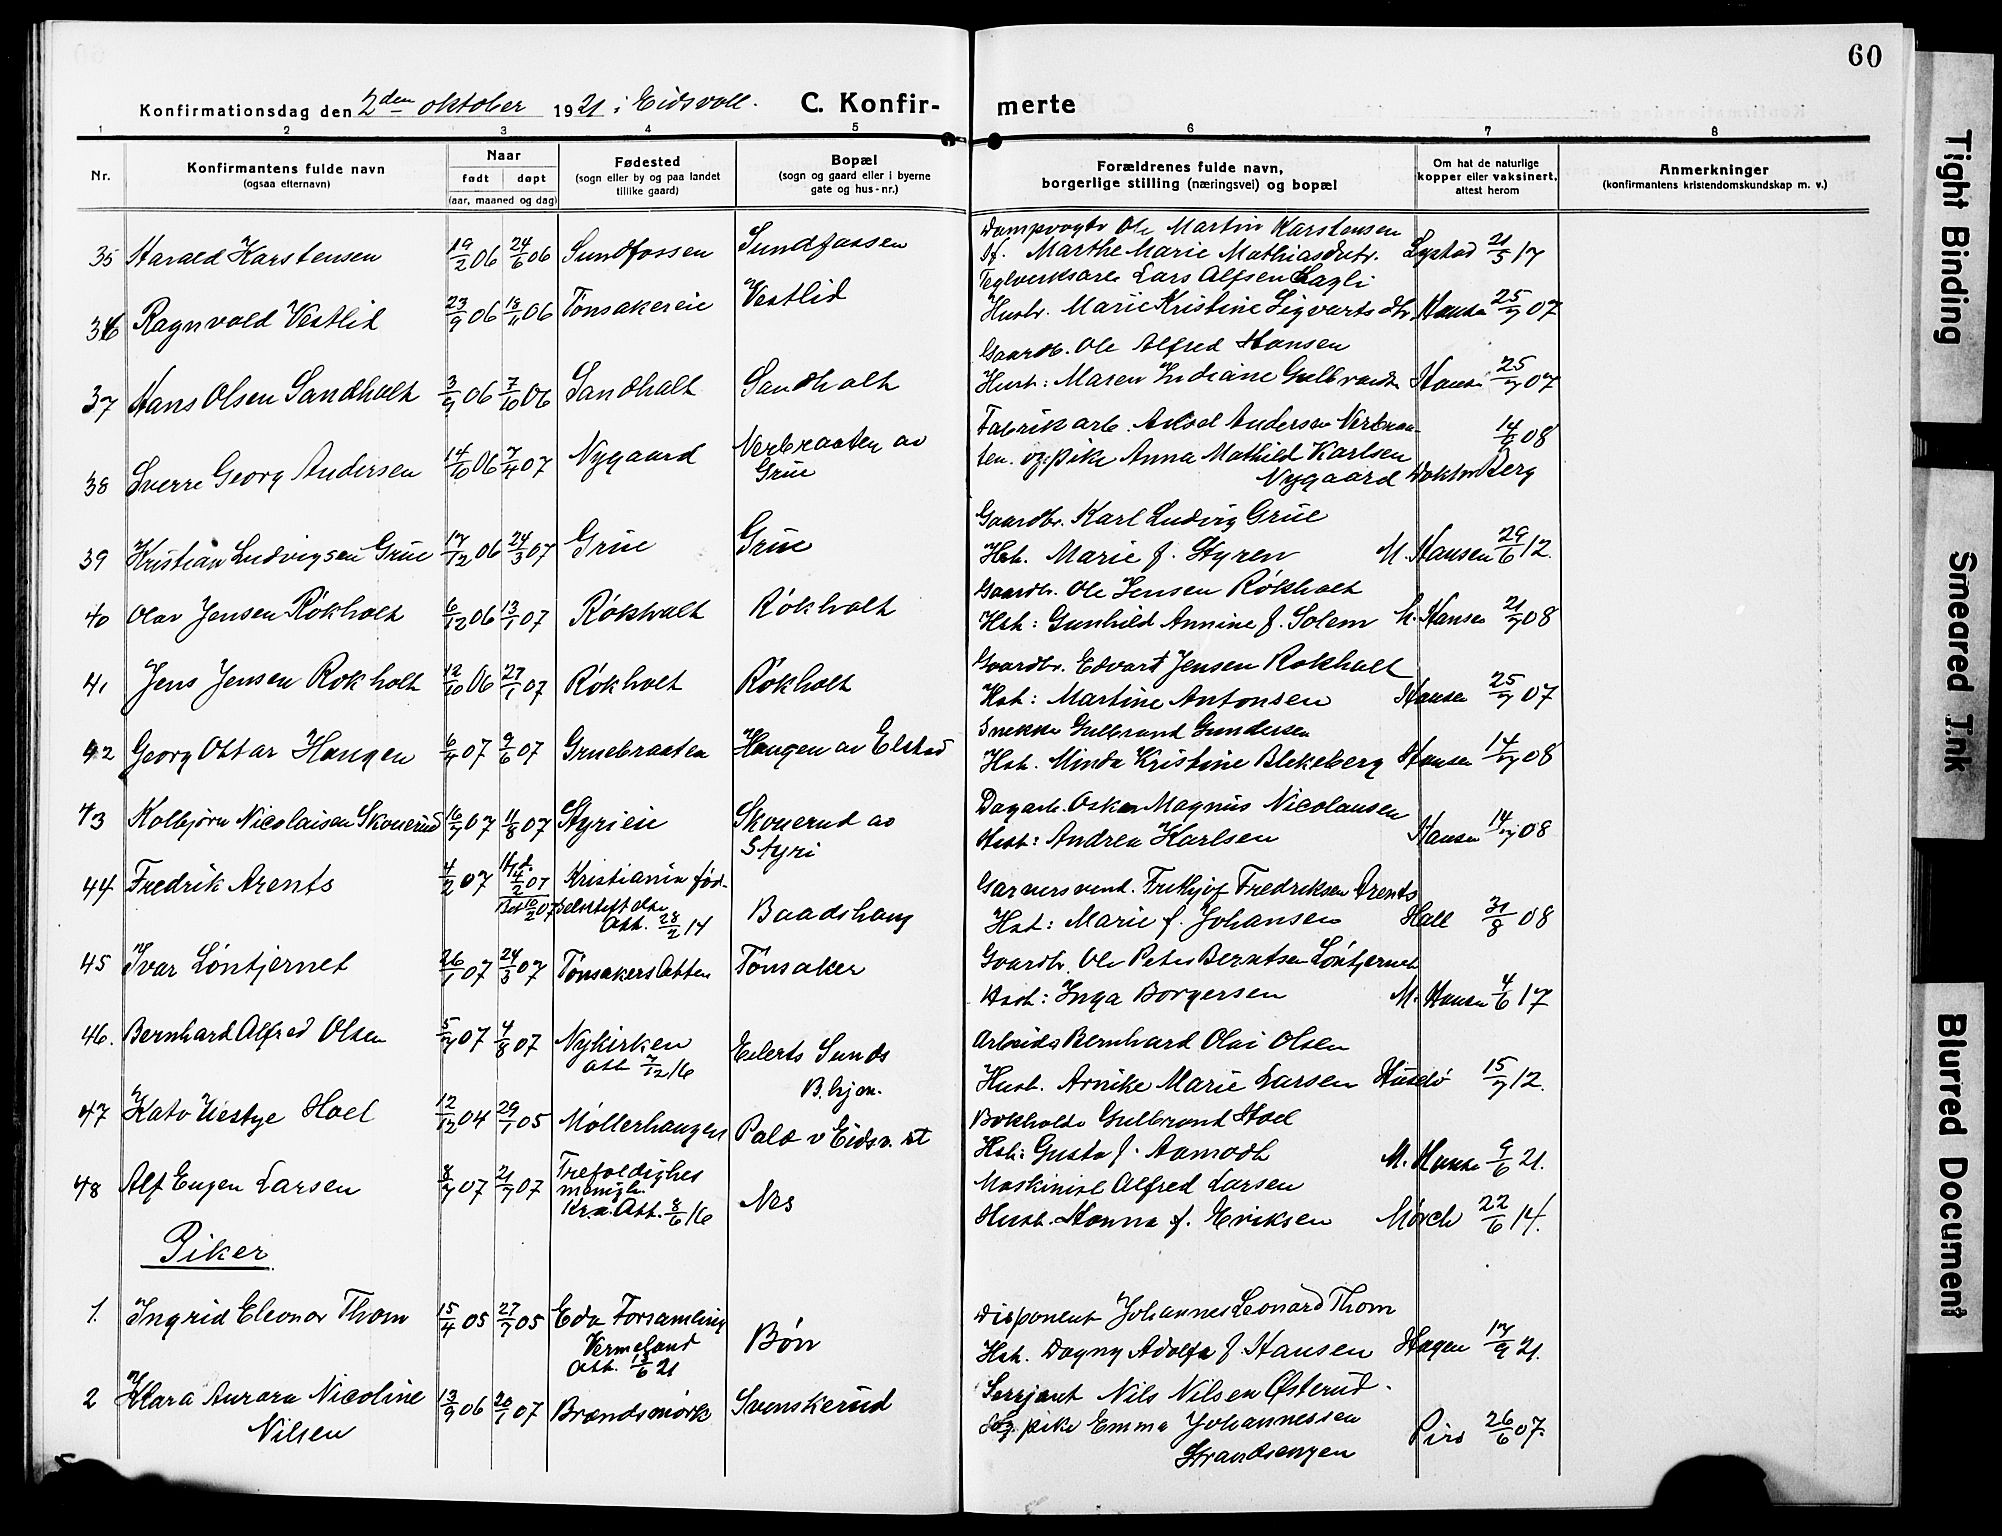 60
Konfirmationsdag den 2den oktober 1921 i Eidsvoll.
C. Konfir-
merte
1 2 3 4 5 6 7 8
Nr.
Konfirmantens fulde navn
(ogsaa efternavn)
Naar
født døpt
(aar, maaned og dag)
Fødested
(sogn eller by og paa landet
tillike gaard)
Bopæl
(sogn og gaard eller i byerne
gate og hus-nr.)
Forældrenes fulde navn,
borgerlige stilling (næringsvei) og bopæl
Om hat de naturlige
kopper eller vaksinert,
attest herom
Anmerkninger
(konfirmantens kristendomskundskap m. v.)
Dampvogtr Ole Martin Karstensen
35 Harald Karstensen 19/2 06 24/6 06 Sundfossen Sundfossen
H. Marthe Marie Mathiasdtr. Lystad 21/5 17
Teglverksarb. Lars Alfsen Hagli
36 Ragnvald Vestlid 23/9 06 18/11 06 Tønsakereie Vestlid
Hustr. Marie Kristine Sigvartsdtr. Hansen 25/7 07
Gaardbr. Ole Alfred Hansen
37 Hans Olsen Sandholt 3/9 06 7/10 06 Sandholt Sandholt
Hust: Maren Indiane Gulbrandsd. Hansen 25/7 07
Fabrikarb. Aksel Andersen Verkraa-
38 Sverre Georg Andersen 14/10 06 7/4 07 Nygaard Verkraaten av
Grue
ten. og pike Anna Mathild Karlsen 14/6 08
Nygaard Doktor Berg
Gaardbr. Karl Ludvig Grue
39 Kristian Ludvigsen Grue 17/12 06 24/3 07 Grue Grue
Hst. Marie f. Styren M. Hansen 29/6 12.
Gaardbr. Ole Jensen Røkholt
40 Olav Jensen Røkholt 6/12 06 13/1 07 Røkholt Røkholt
Hst: Gunhild Annine f. Solem M. Hansen 21/7 08
Gaardbr. Edvart Jensen Rokholt
41 Jens Jensen Rokholt 12/10 06 27/1 07 Røkholt Røkholt
Hst: Martine Antonsen Hansen 25/7 07
Snekker Gulbrand Gundersen
42 Georg Ottar Haugen 6/4 07 9/6 07 Gruebraaten Haugen av Elstad
Hst. Minda Kristine Blekeberg Hansen 14/7 08
Dagarb. Oskar Magnus Nicolausen
43 Kolbjørn Nicolaisen Skouerud 16/7 07 11/8 07 Styrieie Skouerud av
Styri
Hst: Andrea Karlsen Hansen 14/7 08
44 Fredrik Arents 4/2 07 Hjd. 4/2 07
Bet 10/2 07
Kristiania fød-
selsstiftelse
Att. 28/2 14
Baadshaug
Garversvend. Frithjof Fredriksen Arents
Hst: Marie f. Johansen Hall 31/8 08
45 Ivar Løntjernet 26/1 07 24/3 07 Tønsakersætten Tønsaker
Gaardbr. Ole Peter Berntsen Løntjernet
Hst: Inga Borgersen M. Hansen 4/6 17
46. Bernhard Alfred Olsen 5/7 07 4/8 07 Nykirken
att 7/12 16
Eilerts Sunds
B. hjem.
Arbeider Bernhard Olai Olsen
Hust. Arnike Marie Larsen Husebø 15/7 12.
47 Kato Uestye Hoel 12/12 04 29/1 05 Møllerhaugen Palæ v Eidsv. st
Bokholder Gulbrand Hoel
Hst: Gusta f. Aamodt M. Hansen 9/6 21.
48 Alf Eugen Larsen 8/7 07 21/7 07 Trefoldighets
menigh.
Kr.a. Att. 8/6 16
Nes
Maskinist Alfred Larsen
Hust. Hanna f. Eriksen Mørch 22/6 14.
Piker
1. Ingrid Eleonor Thom 15/4 05 27/7 05 Eda Forsamling
Vermeland
Att. 13/6 21
Bøn
Disponent Johannes Leonard Thom
Hst. Dagny Adolfa f. Hansen Hagen 17/9 21.
2 Klara Aurora Nicoline
Nilsen
13/9 06 20/1 07 Brændsmørk Svenskerud
Sersjant Nils Nilsen Østerud.
og pike Emma Johannessen
Strandsengen
Piro 26/6 07.
Tight Binding
Smeared Ink
Blurred Document